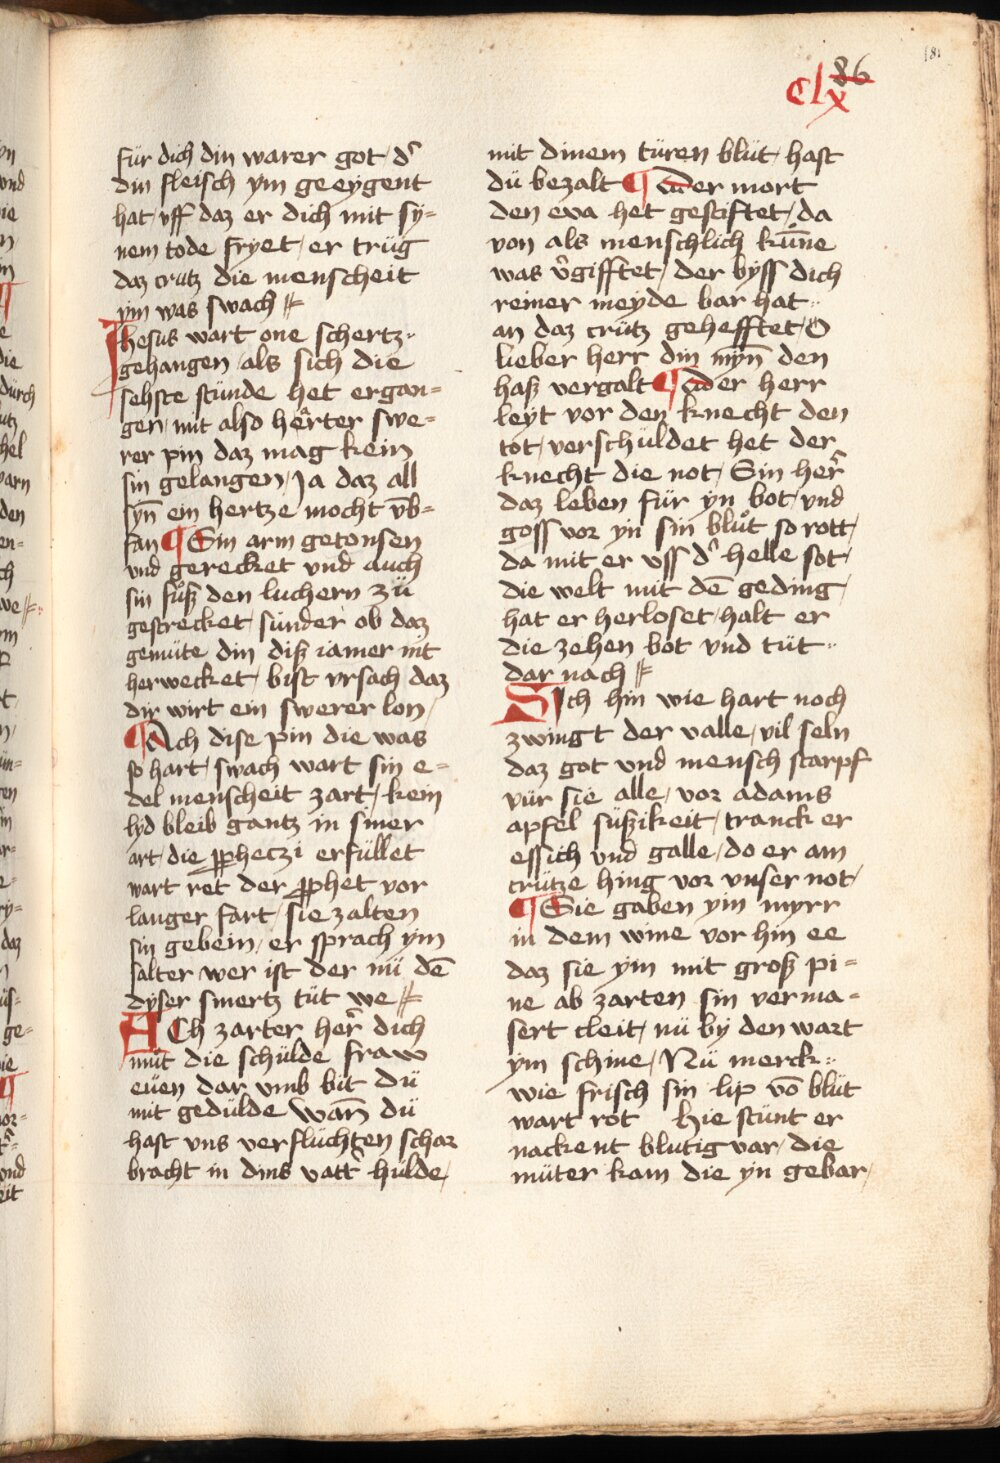 86
181
Clx
für dich din warer got, d᷑
din fleisch ym geeygent
hat, vff daz er dich mit sy=
nem tode fryet, er trüg
daz crutz die menscheit
ym was swach
Ihesus wart one schertz
gehangen, als sich die
sehste stunde het ergan=
gen, mit also herter swe=
rer pin daz mag kein
sin gelangen, Ja daz all
syn̄ ein hertze mocht vb̄=
fan ¶ Sin arm getonsen
vnd gerecket vnd auch
sin fuͦß den luchern zü
gestrecket, sunder ob daz
gemüte din diß iamer nit
herwecket, bist vrsach daz
dir wirt ein swerer lon,
¶ Ach dise pin die was
so hart, swach wart sin e=
del menscheit zart, kein
lyd bleib gantz in siner
art, die ꝓpheczi erfüllet
wart ret der ꝓphet vor
langer fart, sie zalten
sin gebein, er sprach ym
salter wer ist der nü dē
dyser smertz tüt we
ACh zarter her᷑ dich
müt die schülde fraw
euen dar vmb bit dü
mit gedülde wan̄ dü
hast vns verflüchten schar
bracht in dins vatt᷑ hulde,
mit dinem türen blüt, hast
dü bezalt ¶ Oder mort
den eva het gestiftet, da
von als menschlich kün̄ne
was v᷑gifftet, der byss dich
reiner meyde bar hat
an daz crütz gehefftet, O
lieber herr din myn̄ den
haß vergalt ¶ Oder herr
leyt vor den knecht den
tot, verschüldet het der
knecht die not, Sin her᷑
daz leben für yn bot, vnd
goss vor yn sin bluͦt so rott,
da mit er vss d᷑ helle sot,
die welt mit dē geding,
hat er herloset, halt er
die zehen bot vnd tüt
dar nach
SIch hin wie hart noch
zwingt der valle, vil seln
daz got vnd mensch starpf
vür sie alle, vor adams
apfel süßikeit, tranck er
essich vnd galle, do er am
crütze hing vor vnser not,
¶ Sie gaben ym myrr
in dem wine vor hin ee
daz sie ym mit groß pi=
ne ab zarten sin verma=
sert cleit, nü by den wart
ym schine, Nü merck
wie frisch sin lip vō blüt
wart rot Hie stünt er
nackent blutig var, die
müter kam die yn gebar,